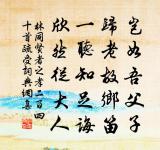 豈如吾父子
歸老故鄉笛
一聽知足誨
欣然從大人
林同賢者之孝二百四
十首疏受詞典網集